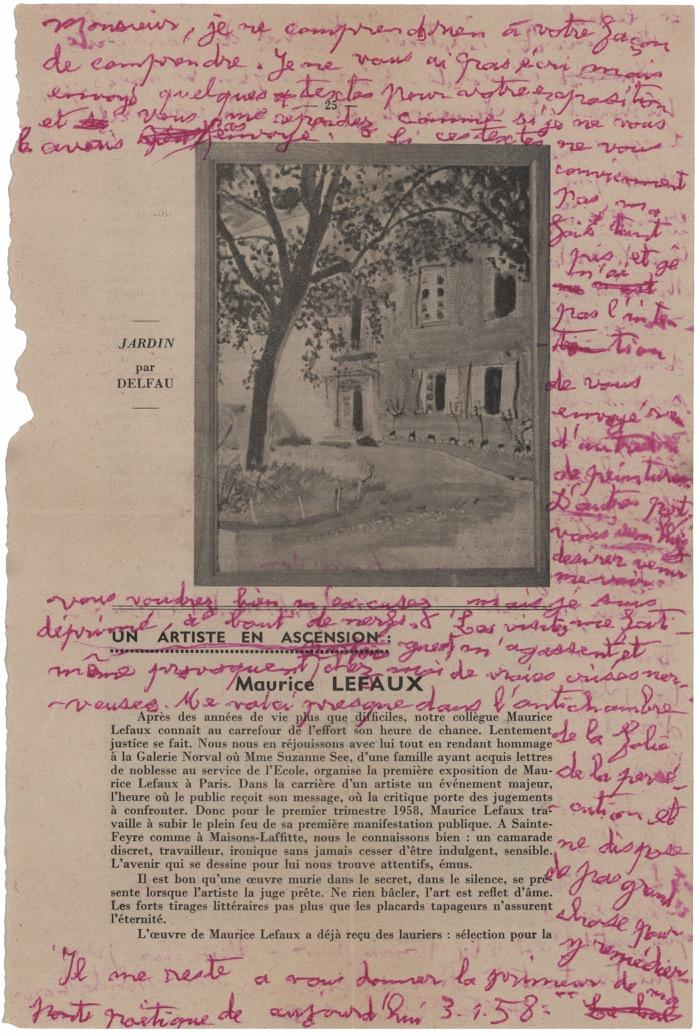 Monsieur, je ne comprends rien à votre façon
de comprendre. Je ne vous ai pas écri mais
envoyé quelques textes pour votre exposition
— 25 —
et vous me répondez comme si je ne vous
avais pas envoyé. Si ces textes ne vous
conviennent
pas, m'a
fait tant
pis et je
n'ai
pas l'inten
tion
de vous
envoyé
d'autres
de peintures
D'autre part
vous
desirer venir
me voir.
JARDIN
par
DELFAU
vous voudrez bien m'excusez mais je suis
déprimé, à bout de nerfs. Les visites me fati-
guent m'agassent et
UN ARTISTE EN ASCENSION :
même provoquent chez moi de vraies crises ner-
veuses. Me voici presque dans l'antichambre
de la folie
de la persé-
cution et
ne dispose
de pas grand
chose pour
y remédier
Maurice LEFAUX
Après des années de vie plus que difficiles, notre collègue Maurice
Lefaux connaît au carrefour de l'effort son heure de chance. Lentement
justice se fait. Nous nous en réjouissons avec lui tout en rendant hommage
à la Galerie Norval où Mme Suzanne See, d'une famille ayant acquis lettres
de noblesse au service de l'Ecole, organise la première exposition de Mau-
rice Lefaux à Paris. Dans la carrière d'un artiste un événement majeur,
l'heure où le public reçoit son message, où la critique porte des jugements
à confronter. Donc pour le premier trimestre 1958, Maurice Lefaux tra-
vaille à subir le plein feu de sa première manifestation publique. A Sainte-
Feyre comme à Maisons-Laffitte, nous le connaissons bien : un camarade
discret, travailleur, ironique sans jamais cesser d'être indulgent, sensible.
L'avenir qui se dessine pour lui nous trouve attentifs, émus.
Il est bon qu'une œuvre murie dans le secret, dans le silence, se pré-
sente lorsque l'artiste la juge prête. Ne rien bâcler, l'art est reflet d'âme.
Les forts tirages littéraires pas plus que les placards tapageurs n'assurent
l'éternité.
L'œuvre de Maurice Lefaux a déjà reçu des lauriers : sélection pour la
Il me reste a vous donner la primeur de ma
ponte poétique de aujourd'hui 3.1.58 :